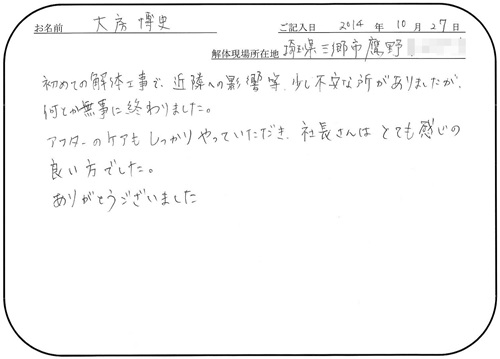 お名前 大房 博史 ご記入日 2014 年 10 月 27 日
解体現場所在地 埼玉県三郷市鷹野
初めての解体工事で、近隣への影響等、少し不安な所がありましたが、
何とか無事に終わりました。
アフターのケアもしっかりやっていただき、社長さんはとても感じの
良い方でした。
ありがとうございました